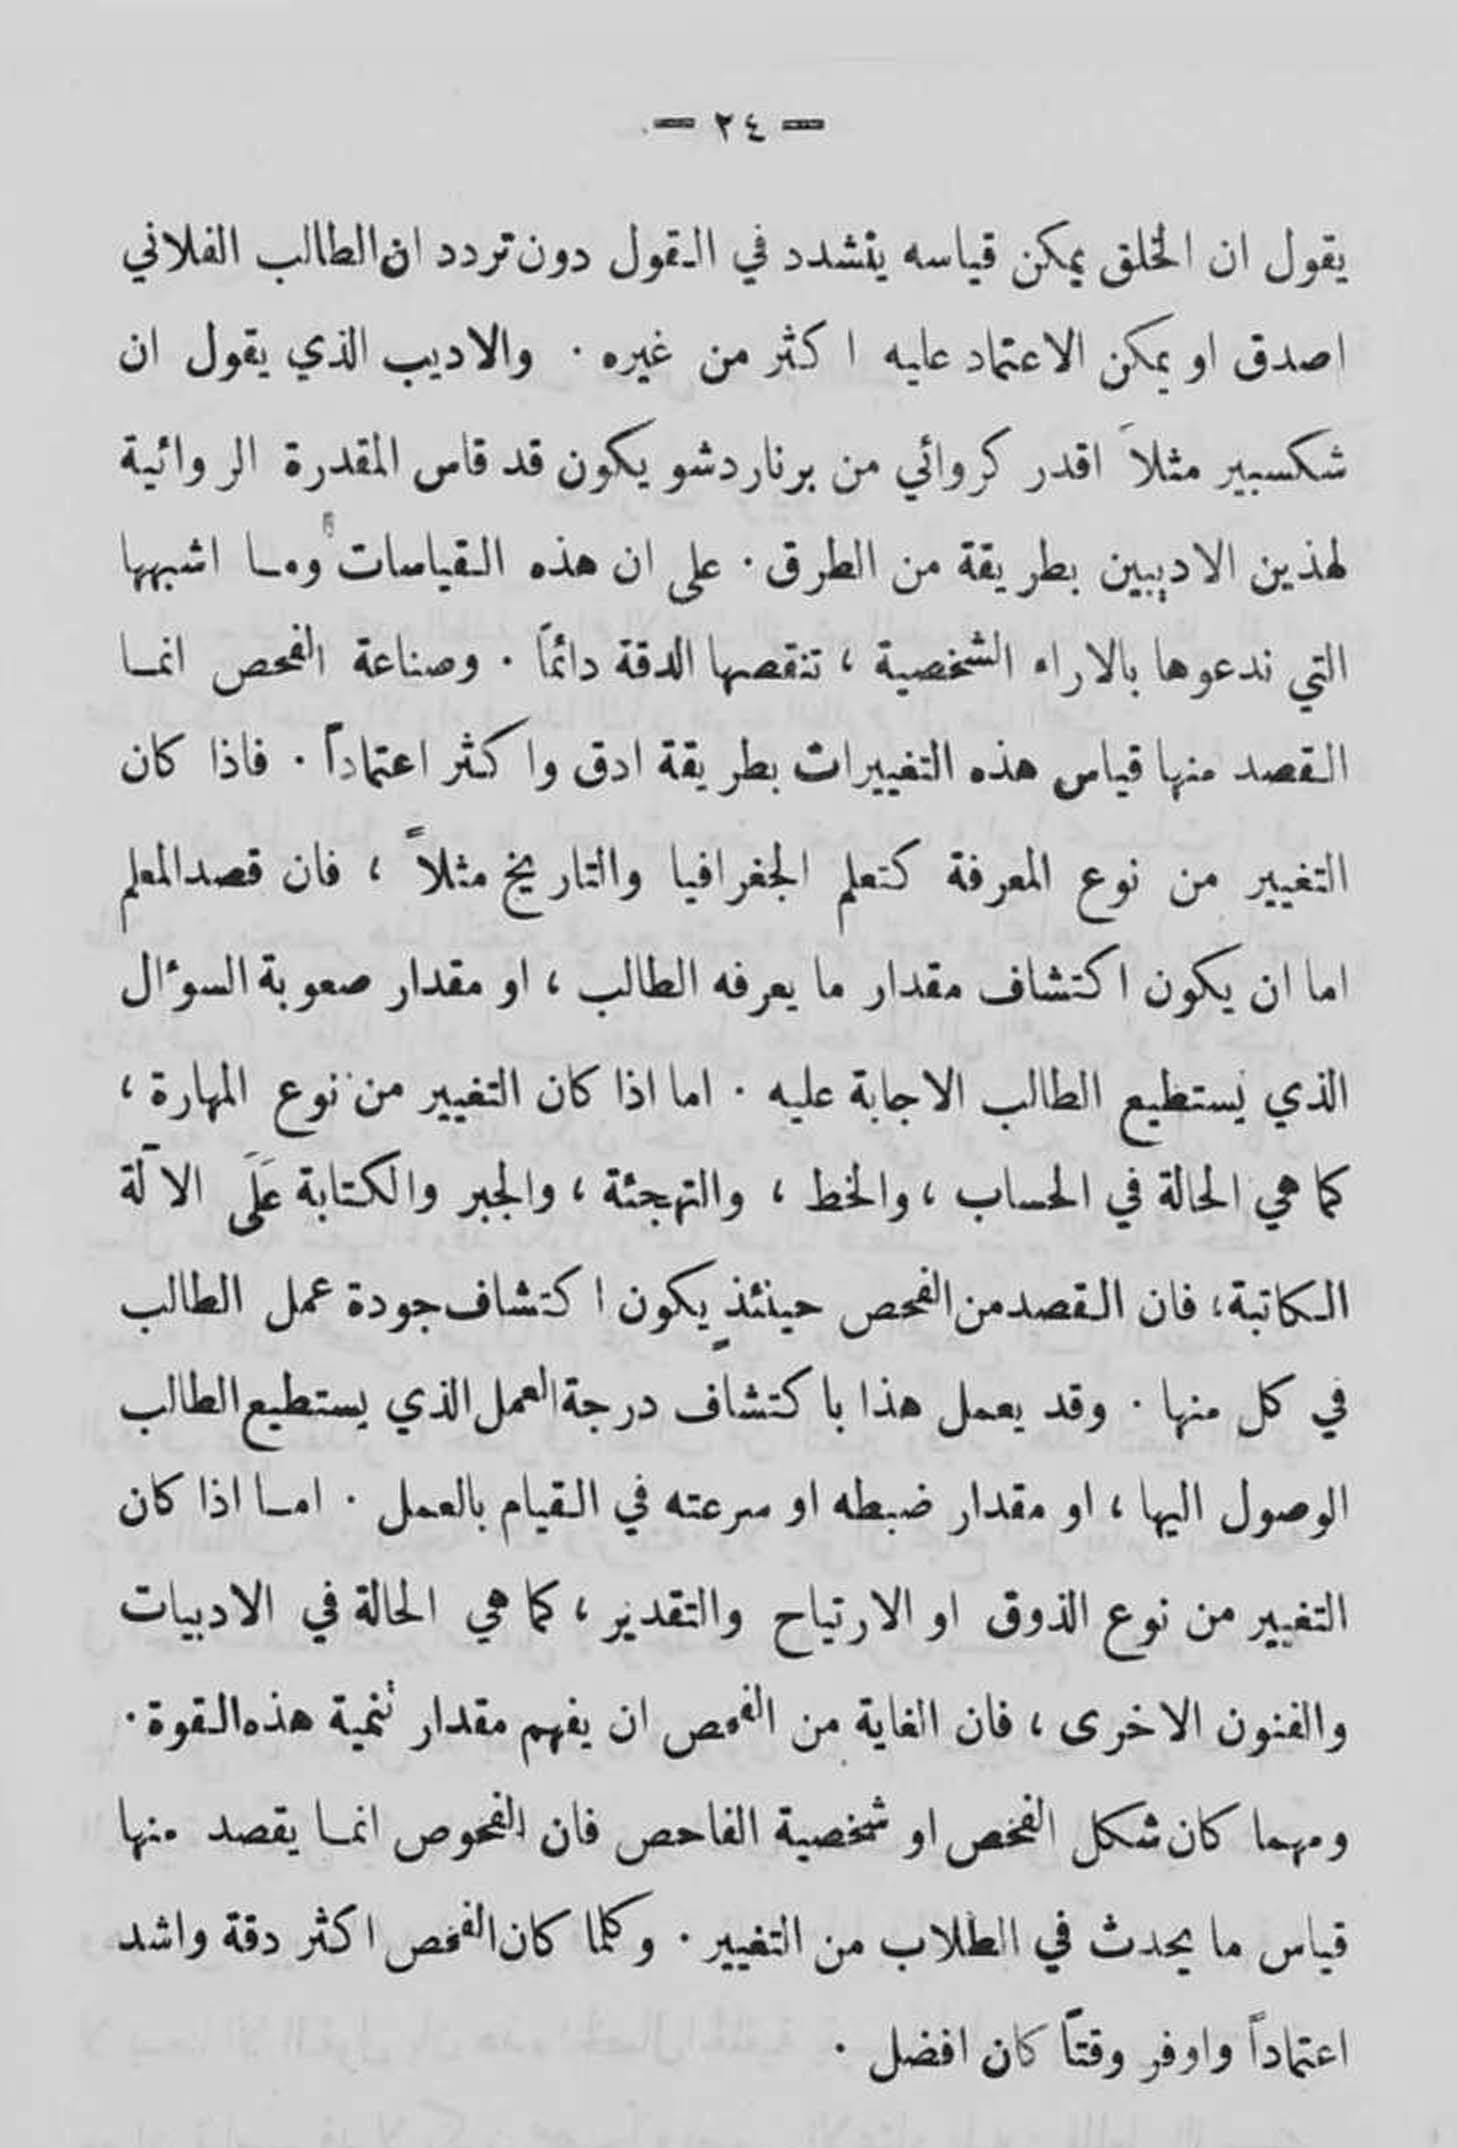 — ٢٤ —
يقول ان الخلق يمكن قياسه يتشدد في القول دون تردد ان الطالب الفلاني
اصدق او يمكن الاعتماد عليه اكثر من غيره . والاديب الذي يقول ان
شكسبير مثلاً اقدر كروائي من برناردشو يكون قد قاس المقدرة الروائية
لهذين الاديبين بطريقة من الطرق . على ان هذه القياسات وما اشبهها
التي ندعوها بالاراء الشخصية ، تنقصها الدقة دائماً . وصناعة الفحص انما
القصد منها قياس هذه التغييرات بطريقة ادق واكثر اعتماداً . فاذا كان
التغيير من نوع المعرفة كتعلم الجغرافيا والتاريخ مثلاً ، فان قصد المعلم
اما ان يكون اكتشاف مقدار ما يعرفه الطالب ، او مقدار صعوبة السوءال
الذي يستطيع الطالب الاجابة عليه . اما اذا كان التغيير من نوع المهارة ،
كما هي الحالة في الحساب ، والخط ، والتهجئة ، والجبر والكتابة عَلَى الآلة
الكاتبة ، فان القصد من الفحص حينئذٍ يكون اكتشاف جودة عمل الطالب
في كل منها . وقد يعمل هذا باكتشاف درجة العمل الذي يستطيع الطالب
الوصول اليها ، او مقدار ضبطه او سرعته في القيام بالعمل . اما اذا كان
التغيير من نوع الذوق او الارتياح والتقدير ، كما هي الحالة في الادبيات
والفنون الاخرى ، فان الغاية من الفحص ان يفهم مقدار تنمية هذه القوة .
ومهما كان شكل الفحص او شخصية الفاحص فان الفحوص انما يقصد منها
قياس ما يحدث في الطلاب من التغيير . وكلما كان الفحص اكثر دقة واشد
اعتماداً واوفر وقتاً كان افضل .